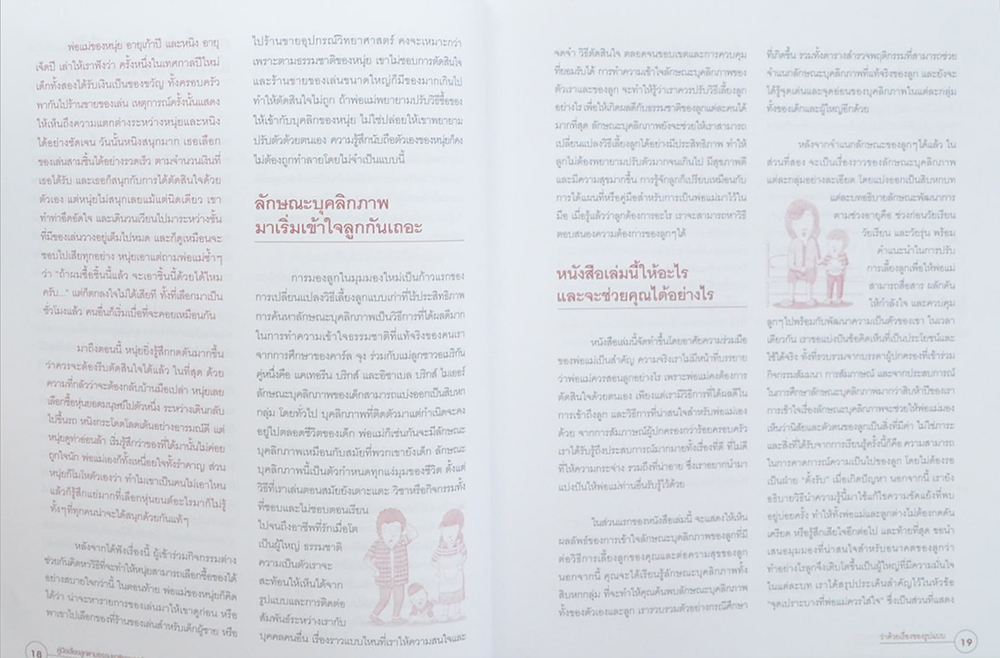 พ่อแม่ของหนุ่ย อายุเก้าปี และหนิง อายุ
เจ็ดปี เล่าให้เราฟังว่า ครั้งหนึ่งในเทศกาลปีใหม่
เด็กทั้งสองได้รับเงินเป็นของขวัญ ทั้งครอบครัว
พากันไปร้านขายของเล่น เหตุการณ์ครั้งนั้นแสดง
ให้เห็นถึงความแตกต่างระหว่างหนุ่ยและหนิง
ได้อย่างชัดเจน วันนั้นหนิงสนุกมาก เธอเลือก
ของเล่นสามชิ้นได้อย่างรวดเร็ว ตามจำนวนเงินที่
เธอได้รับ และเธอก็สนุกกับการได้ตัดสินใจด้วย
ตัวเอง แต่หนุ่ยไม่สนุกเลยแม้แต่นิดเดียว เขา
ทำท่าอึดอัดใจ และเดินวนเวียนไปมาระหว่างชั้น
ที่มีของเล่นวางอยู่เต็มไปหมด และก็ดูเหมือนจะ
ชอบไปเสียทุกอย่าง หนุ่ยเอาแต่ถามพ่อแม่ซ้ำๆ
ว่า "ถ้าผมซื้อชิ้นนี้แล้ว จะเอาชิ้นนี้ด้วยได้ไหม
ครับ..." แต่ก็ตกลงใจไม่ได้เสียที ทั้งที่เลือกมาเป็น
ชั่วโมงแล้ว คนอื่นก็เริ่มเบื่อที่จะคอยเหมือนกัน
มาถึงตอนนี้ หนุ่ยยิ่งรู้สึกกดดันมากขึ้น
ว่าควรจะต้องรีบตัดสินใจได้แล้ว ในที่สุด ด้วย
ความที่กลัวว่าจะต้องกลับบ้านมือเปล่า หนุ่ยเลย
เลือกซื้อหุ่นยอดมนุษย์ไปตัวหนึ่ง ระหว่างเดินกลับ
ไปขึ้นรถ หนิงกระโดดโลดเต้นอย่างอารมณ์ดี แต่
หนุ่ยดูท่าอ่อนล้า เริ่มรู้สึกว่าของที่ได้มานั้นไม่ค่อย
ถูกใจนัก พ่อแม่เองก็ทั้งเหนื่อยใจทั้งรำคาญ ส่วน
หนุ่ยก็โมโหตัวเองว่า ทำไมเขาเป็นคนไม่เอาไหน
แล้วก็รู้สึกแย่มากที่เลือกหุ่นยนต์อะไรมาก็ไม่รู้
ทั้งๆที่ทุกคนน่าจะได้สนุกด้วยกันแท้ๆ
หลังจากได้ฟังเรื่องนี้ ผู้เข้าร่วมกิจกรรมต่าง
ช่วยกันคิดหาวิธีที่จะทำให้หนุ่ยสามารถเลือกซื้อของได้
อย่างสบายใจกว่านี้ ในตอนท้าย พ่อแม่ของหนุ่ยก็คิด
ได้ว่า น่าจะหารายการของเล่นมาให้เขาดูก่อน หรือ
พาเขาไปเลือกของที่ร้านของเล่นสำหรับเด็กผู้ชาย หรือ
18
ไปร้านขายอุปกรณ์วิทยาศาสตร์ คงจะเหมาะกว่า
เพราะตามธรรมชาติของหนุ่ย เขาไม่ชอบการตัดสินใจ
และร้านขายของเล่นขนาดใหญ่ก็มีของมากเกินไป
ทำให้ตัดสินใจไม่ถูก ถ้าพ่อแม่พยายามปรับวิธีซื้อของ
ให้เข้ากับบุคลิกของหนุ่ย ไม่ใช่ปล่อยให้เขาพยายาม
ปรับตัวด้วยตนเอง ความรู้สึกนับถือตัวเองของหนุ่ยก็คง
ไม่ต้องถูกทำลายโดยไม่จำเป็นแบบนี้
ลักษณะบุคลิกภาพ
มาเริ่มเข้าใจลูกกันเถอะ
การมองลูกในมุมมองใหม่เป็นก้าวแรกของ
การเปลี่ยนแปลงวิธีเลี้ยงลูกแบบเก่าที่ไร้ประสิทธิภาพ
การค้นหาลักษณะบุคลิกภาพเป็นวิธีการที่ได้ผลดีมาก
ในการทำความเข้าใจธรรมชาติที่แท้จริงของคนเรา
จากการศึกษาของคาร์ล จุง ร่วมกับแม่ลูกชาวอเมริกัน
คู่หนึ่งคือ แคเทอรีน บริกส์ และอิซาเบล บริกส์ ไมเออร์
ลักษณะบุคลิกภาพของเด็กสามารถแบ่งออกเป็นสิบหก
กลุ่ม โดยทั่วไป บุคลิกภาพที่ติดตัวมาแต่กำเนิดจะคง
อยู่ไปตลอดชีวิตของเด็ก พ่อแม่ก็เช่นกันจะมีลักษณะ
บุคลิกภาพเหมือนกับสมัยที่พวกเขายังเด็ก ลักษณะ
บุคลิกภาพนี้เป็นตัวกำหนดทุกแง่มุมของชีวิต ตั้งแต่
วิธีที่เราเล่นตอนสมัยยังเตาะแตะ วิชาหรือกิจกรรมทั้ง
ที่ชอบและไม่ชอบตอนเรียน
ไปจนถึงอาชีพที่รักเมื่อโต
เป็นผู้ใหญ่ ธรรมชาติ
ความเป็นตัวเราจะ
สะท้อนให้เห็นได้จาก
รูปแบบและการติดต่อ
สัมพันธ์ระหว่างเรากับ
บุคคลคนอื่น เรื่องราวแบบไหนที่เราให้ความสนใจและ
จดจำ วิธีตัดสินใจ ตลอดจนขอบเขตและการควบคุม
ที่ยอมรับได้ การทำความเข้าใจลักษณะบุคลิกภาพของ
ตัวเราและของลูก จะทำให้รู้ว่าเราควรปรับวิธีเลี้ยงลูก
อย่างไร เพื่อให้เกิดผลดีกับธรรมชาติของลูกแต่ละคนได้
มากที่สุด ลักษณะบุคลิกภาพยังจะช่วยให้เราสามารถ
เปลี่ยนแปลงวิธีเลี้ยงลูกได้อย่างมีประสิทธิภาพ ทำให้
ลูกไม่ต้องพยายามปรับตัวมากจนเกินไป มีสุขภาพดี
และมีความสุขมากขึ้น การรู้จักลูกก็เปรียบเหมือนกับ
การได้แผนที่หรือคู่มือสำหรับการเป็นพ่อแม่มาไว้ใน
มือ เมื่อรู้แล้วว่าลูกต้องการอะไร เราจะสามารถหาวิธี
ตอบสนองความต้องการของลูกๆได้
หนังสือเล่มนี้ให้อะไร
และจะช่วยคุณได้อย่างไร
หนังสือเล่มนี้จัดทำขึ้นโดยอาศัยความร่วมมือ
ของพ่อแม่เป็นสำคัญ ความจริงเราไม่มีหน้าที่บรรยาย
ว่าพ่อแม่ควรสอนลูกอย่างไร เพราะพ่อแม่คงต้องการ
ตัดสินใจด้วยตนเอง เพียงแต่เรามีวิธีการที่ได้ผลดีใน
การเข้าถึงลูก และวิธีการที่น่าสนใจสำหรับพ่อแม่เอง
ด้วย จากการสัมภาษณ์ผู้ปกครองกว่าร้อยครอบครัว
เราได้รับรู้ถึงประสบการณ์มากมายทั้งเรื่องที่ดี ที่ไม่ดี
ที่ให้ความกระจ่าง รวมถึงที่น่าอาย ซึ่งเราอยากนำมา
แบ่งปันให้พ่อแม่ท่านอื่นรับรู้ไว้ด้วย
ในส่วนแรกของหนังสือเล่มนี้ จะแสดงให้เห็น
ผลลัพธ์ของการเข้าใจลักษณะบุคลิกภาพของลูกที่มี
ต่อวิธีการเลี้ยงลูกของคุณและต่อความสุขของลูก
นอกจากนี้ คุณจะได้เรียนรู้ลักษณะบุคลิกภาพทั้ง
สิบหกกลุ่ม ที่จะทำให้คุณค้นพบลักษณะบุคลิกภาพ
ทั้งของตัวเองและลูก เรารวบรวมตัวอย่างกรณีศึกษา
ที่เกิดขึ้น รวมทั้งตารางสำรวจพฤติกรรมที่สามารถช่วย
จำแนกลักษณะบุคลิกภาพที่แท้จริงของลูก และยังจะ
ได้รู้จุดเด่นและจุดอ่อนของบุคลิกภาพในแต่ละกลุ่ม
ทั้งของเด็กและผู้ใหญ่อีกด้วย
หลังจากจำแนกลักษณะของลูกๆได้แล้ว ใน
ส่วนที่สอง จะเป็นเรื่องราวของลักษณะบุคลิกภาพ
แต่ละกลุ่มอย่างละเอียด โดยแบ่งออกเป็นสิบหกบท
แต่ละบทอธิบายลักษณะพัฒนาการ
ตามช่วงอายุคือ ช่วงก่อนวัยเรียน
วัยเรียน และวัยรุ่น พร้อม
คำแนะนำในการปรับ
การเลี้ยงลูกเพื่อให้พ่อแม่
สามารถสื่อสาร ผลักดัน
ให้กำลังใจ และควบคุม
ลูกๆไปพร้อมกับพัฒนาความเป็นตัวของเขา ในเวลา
เดียวกัน เราขอแบ่งปันข้อคิดเห็นที่เป็นประโยชน์และ
ใช้ได้จริง ทั้งที่รวบรวมจากบรรดาผู้ปกครองที่เข้าร่วม
กิจกรรมสัมมนา การสัมภาษณ์ และจากประสบการณ์
ในการศึกษาลักษณะบุคลิกภาพมากว่าสิบห้าปีของเรา
การเข้าใจเรื่องลักษณะบุคลิกภาพจะช่วยให้พ่อแม่มอง
เห็นว่านิสัยและตัวตนของลูกเป็นสิ่งที่มีค่า ไม่ใช่ภาระ
และสิ่งที่ได้รับจากการเรียนรู้ครั้งนี้ก็คือ ความสามารถ
ในการคาดการณ์ความเป็นไปของลูก โดยไม่ต้องรอ
เป็นฝ่าย "ตั้งรับ" เมื่อเกิดปัญหา นอกจากนี้ เรายัง
อธิบายวิธีนำความรู้นี้มาใช้แก้ไขความขัดแย้งที่พบ
อยู่บ่อยครั้ง ทำให้ทั้งพ่อแม่และลูกต่างไม่ต้องกดดัน
เครียด หรือรู้สึกเสียใจอีกต่อไป และท้ายที่สุด ขอนำ
เสนอมุมมองที่น่าสนใจสำหรับอนาคตของลูกว่า
ทำอย่างไรลูกจึงเติบโตขึ้นเป็นผู้ใหญ่ที่มีความมั่นใจ
ในแต่ละบท เราได้สรุปประเด็นสำคัญไว้ในหัวข้อ
"จุดเปราะบางที่พ่อแม่ควรใส่ใจ" ซึ่งเป็นส่วนที่แสดง
ว่าด้วยเรื่องของรูปแบบ
19